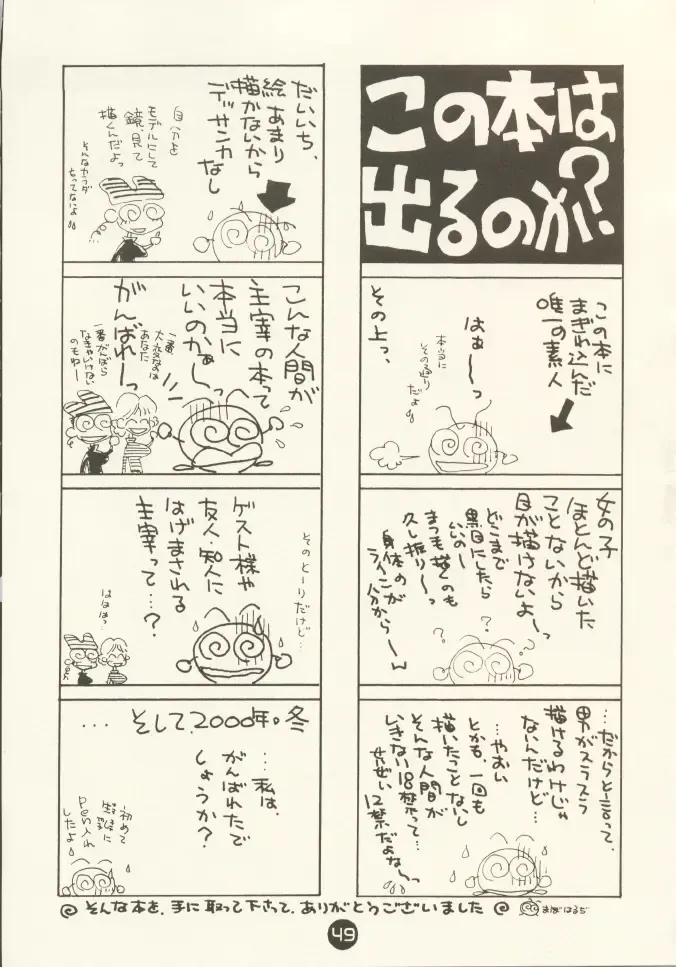 この本は
出るのか?
この本に
まぎれ込んだ
唯一の素人
はぁ〜〜っ
本当に
その通り
だよ
その上っ、
女の子
ほとんど描いた
ことないから
目が描けないよ〜っ
どこまで
黒目にしたら
いいの〜
まつ毛描くのも
久し振り〜っ
身体の
ラインが
分からーん
?
?
?
…だからと言って、
男がスラスラ
描けるわけじゃ
ないんだけど…
…やおい
とかも、一回も
描いたことないし
そんな人間が
いきない18禁って…
せいぜい
12禁だよな〜
だいいち、
絵あまり
描かないから
デッサン力
なし
自分を
モデルにして
鏡見て
描くんだよっ
そんなカラダ
もってないよ
こんな人間が
主宰の本って
本当に
いいのかぁ〜っ
がんばれーっ
一番
大変なのは
あなた
一番がんばら
なきゃいけない
のもねー
そのとーりだけど…
ゲスト様や
友人・知人に
はげまされる
主宰って…?
ははは…
…そして、2000年。冬
……私は、
がんばれたで
しょうか?
初めて
Pen入れ
したよ
そんな本を、手に取って下さって、ありがとうございました
まぼはるぢ
49